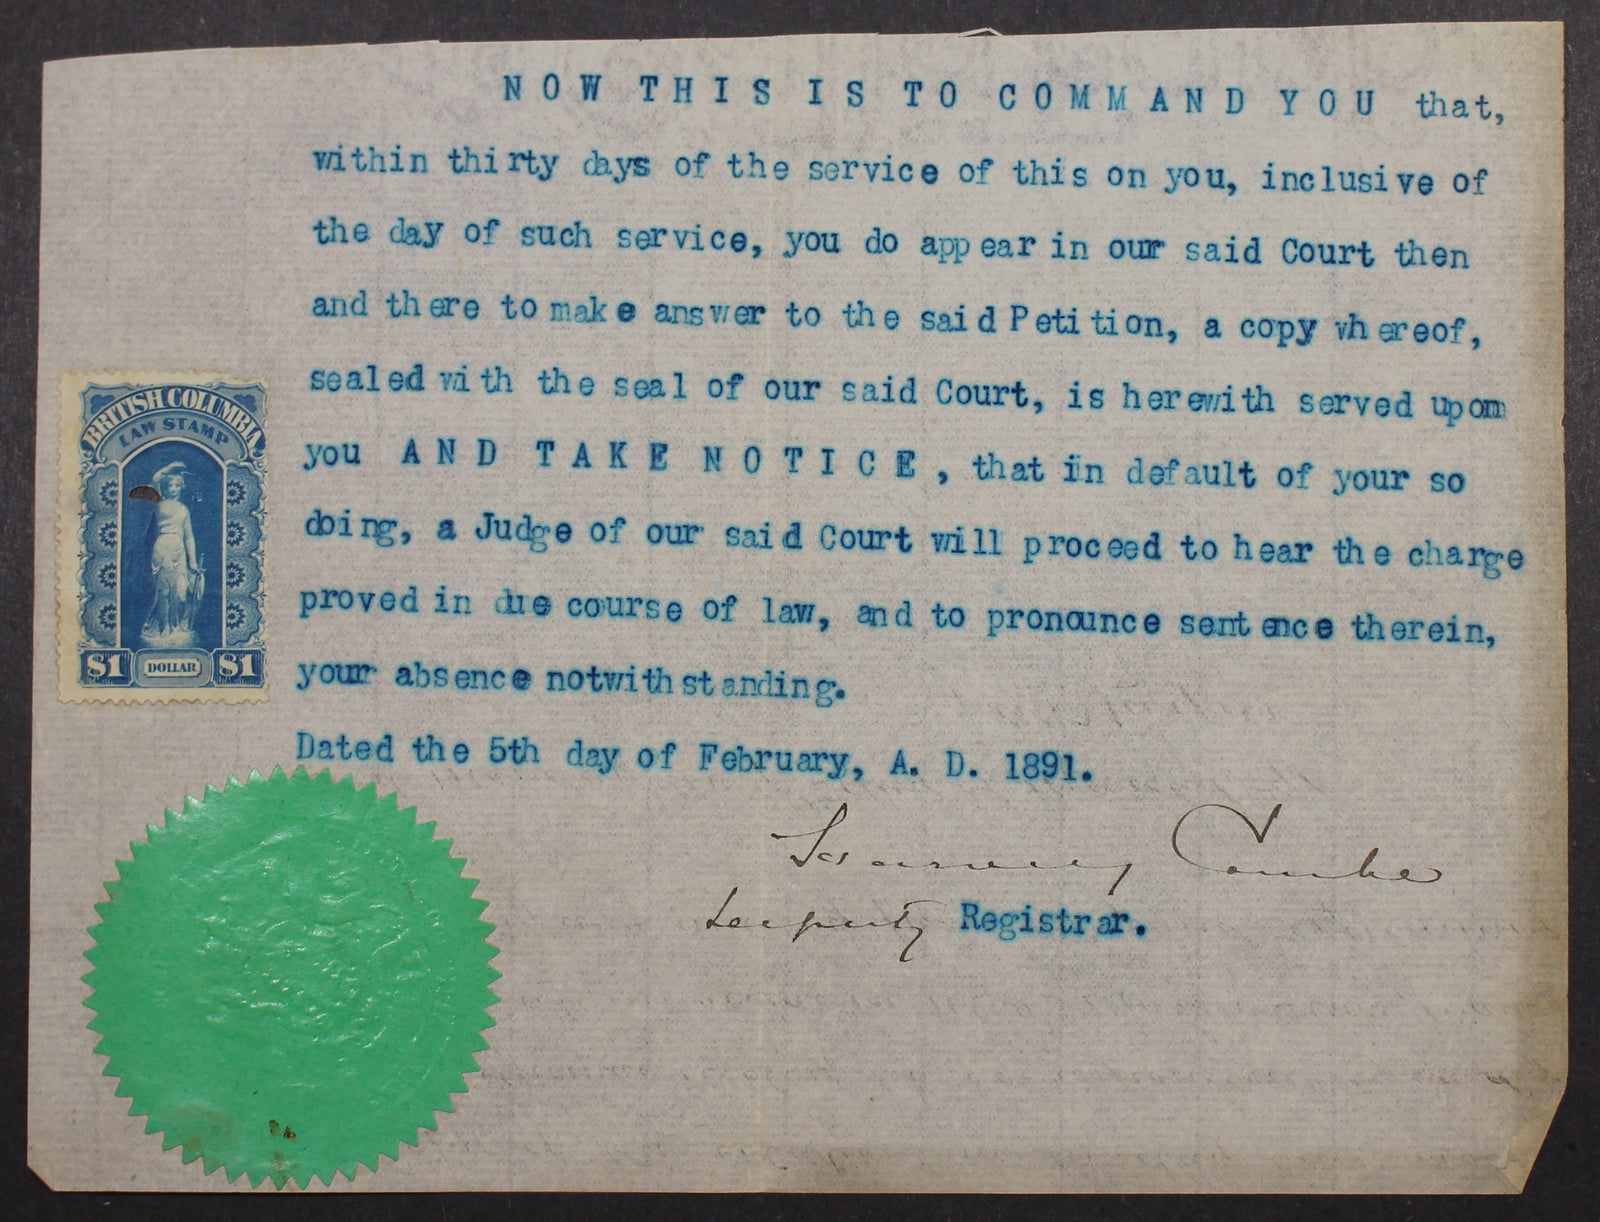 NOW THIS IS TO COMMAND YOU that,
within thirty days of the service of this on you, inclusive of
the day of such service, you do appear in our said Court then
and there to make answer to the said Petition, a copy whereof,
sealed with the seal of our said Court, is herewith served upon
you AND TAKE NOTICE, that in default of your so
doing, a Judge of our said Court will proceed to hear the charge
proved in due course of law, and to pronounce sentence therein,
your absence notwithstanding.
Dated the 5th day of February, A. D. 1891.
Registrar.
BRITISH COLUMBIA
LAW STAMP
$1 DOLLAR $1